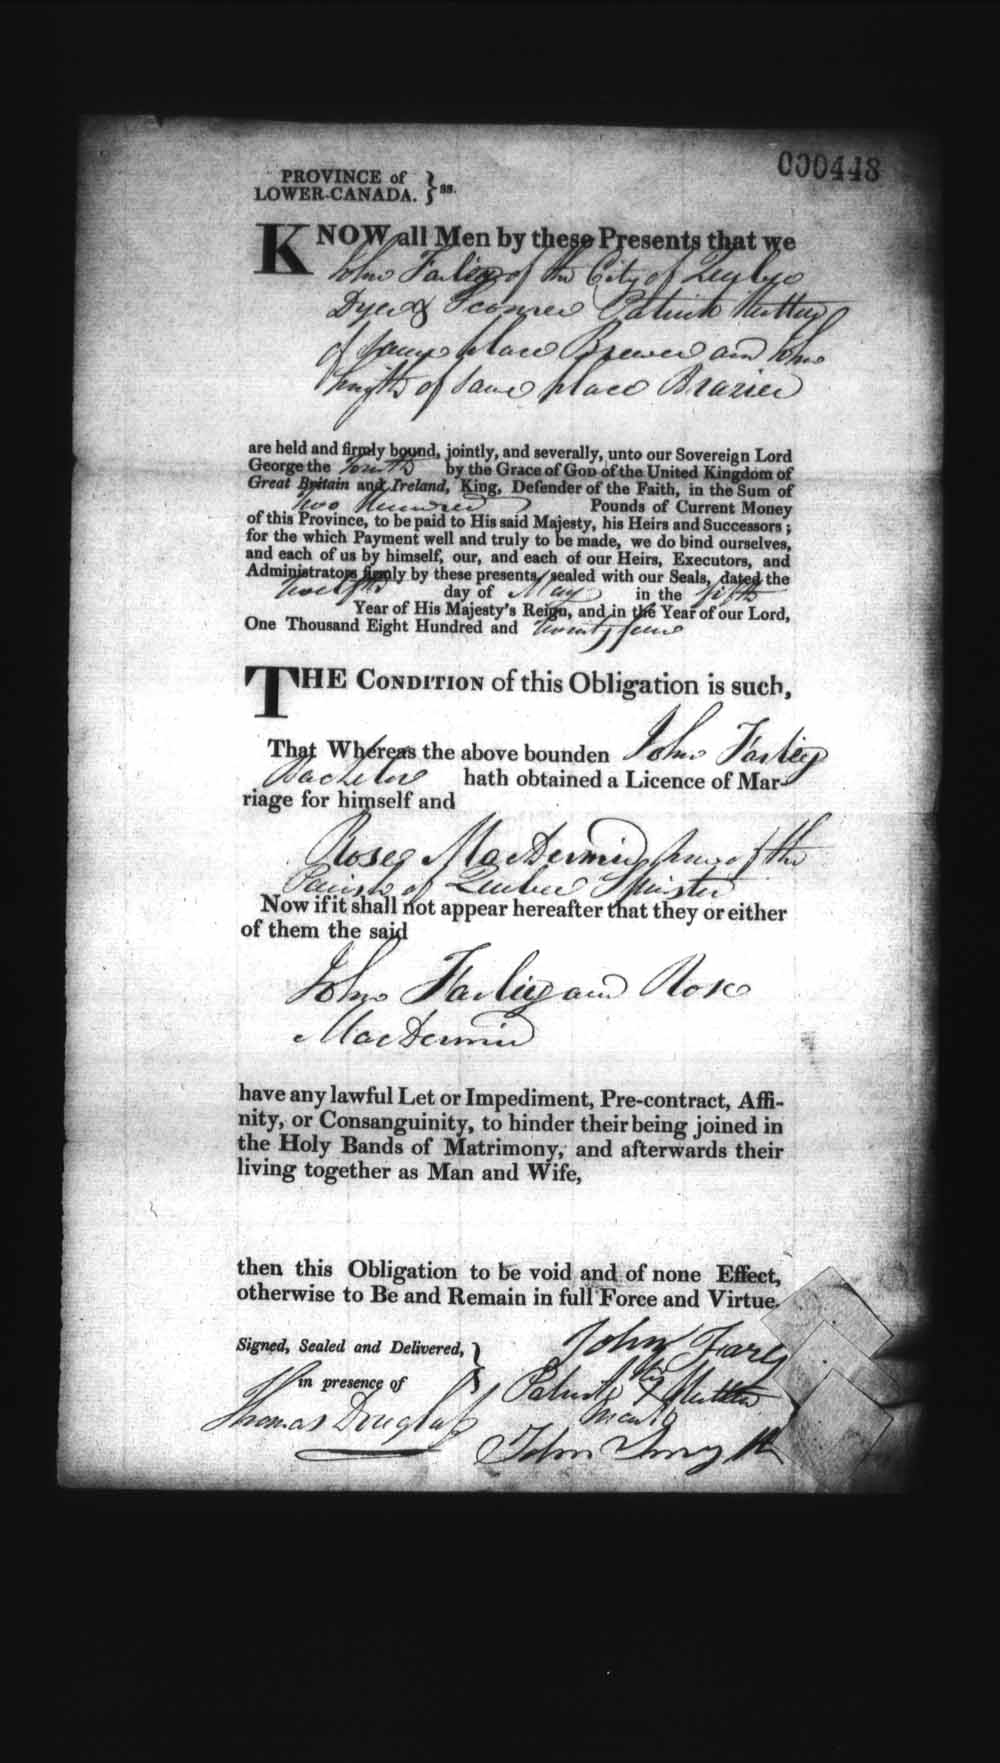 000448
PROVINCE of
LOWER-CANADA. } ss.
KNOW all Men by these Presents that we
John Farley of the City of Quebec
Dyer & Scourer Patrick
of same place Brewer and John
Smyth of same place Brazier
are held and firmly bound, jointly, and severally, unto our Sovereign Lord
George the Fourth by the Grace of GOD of the United Kingdom of
Great Britain and Ireland, King, Defender of the Faith, in the Sum of
Two Hundred Pounds of Current Money
of this Province, to be paid to His said Majesty, his Heirs and Successors ;
for the which Payment well and truly to be made, we do bind ourselves,
and each of us by himself, our, and each of our Heirs, Executors, and
Administrators firmly by these presents, sealed with our Seals, dated the
twelfth day of May in the fifth
Year of His Majesty's Reign, and in the Year of our Lord,
One Thousand Eight Hundred and twenty four
THE CONDITION of this Obligation is such,
That Whereas the above bounden John Farley
Bachelor hath obtained a Licence of Mar-
riage for himself and
Rose MacDermid of the
Parish of Quebec Spinster
Now if it shall not appear hereafter that they or either
of them the said
John Farley and Rose
MacDermid
have any lawful Let or Impediment, Pre-contract, Affi-
nity, or Consanguinity, to hinder their being joined in
the Holy Bands of Matrimony, and afterwards their
living together as Man and Wife,
then this Obligation to be void and of none Effect,
otherwise to Be and Remain in full Force and Virtue.
Signed, Sealed and Delivered, }
in presence of
Thomas Douglas
John Farly
his
Patrick X
mark
John Smyth